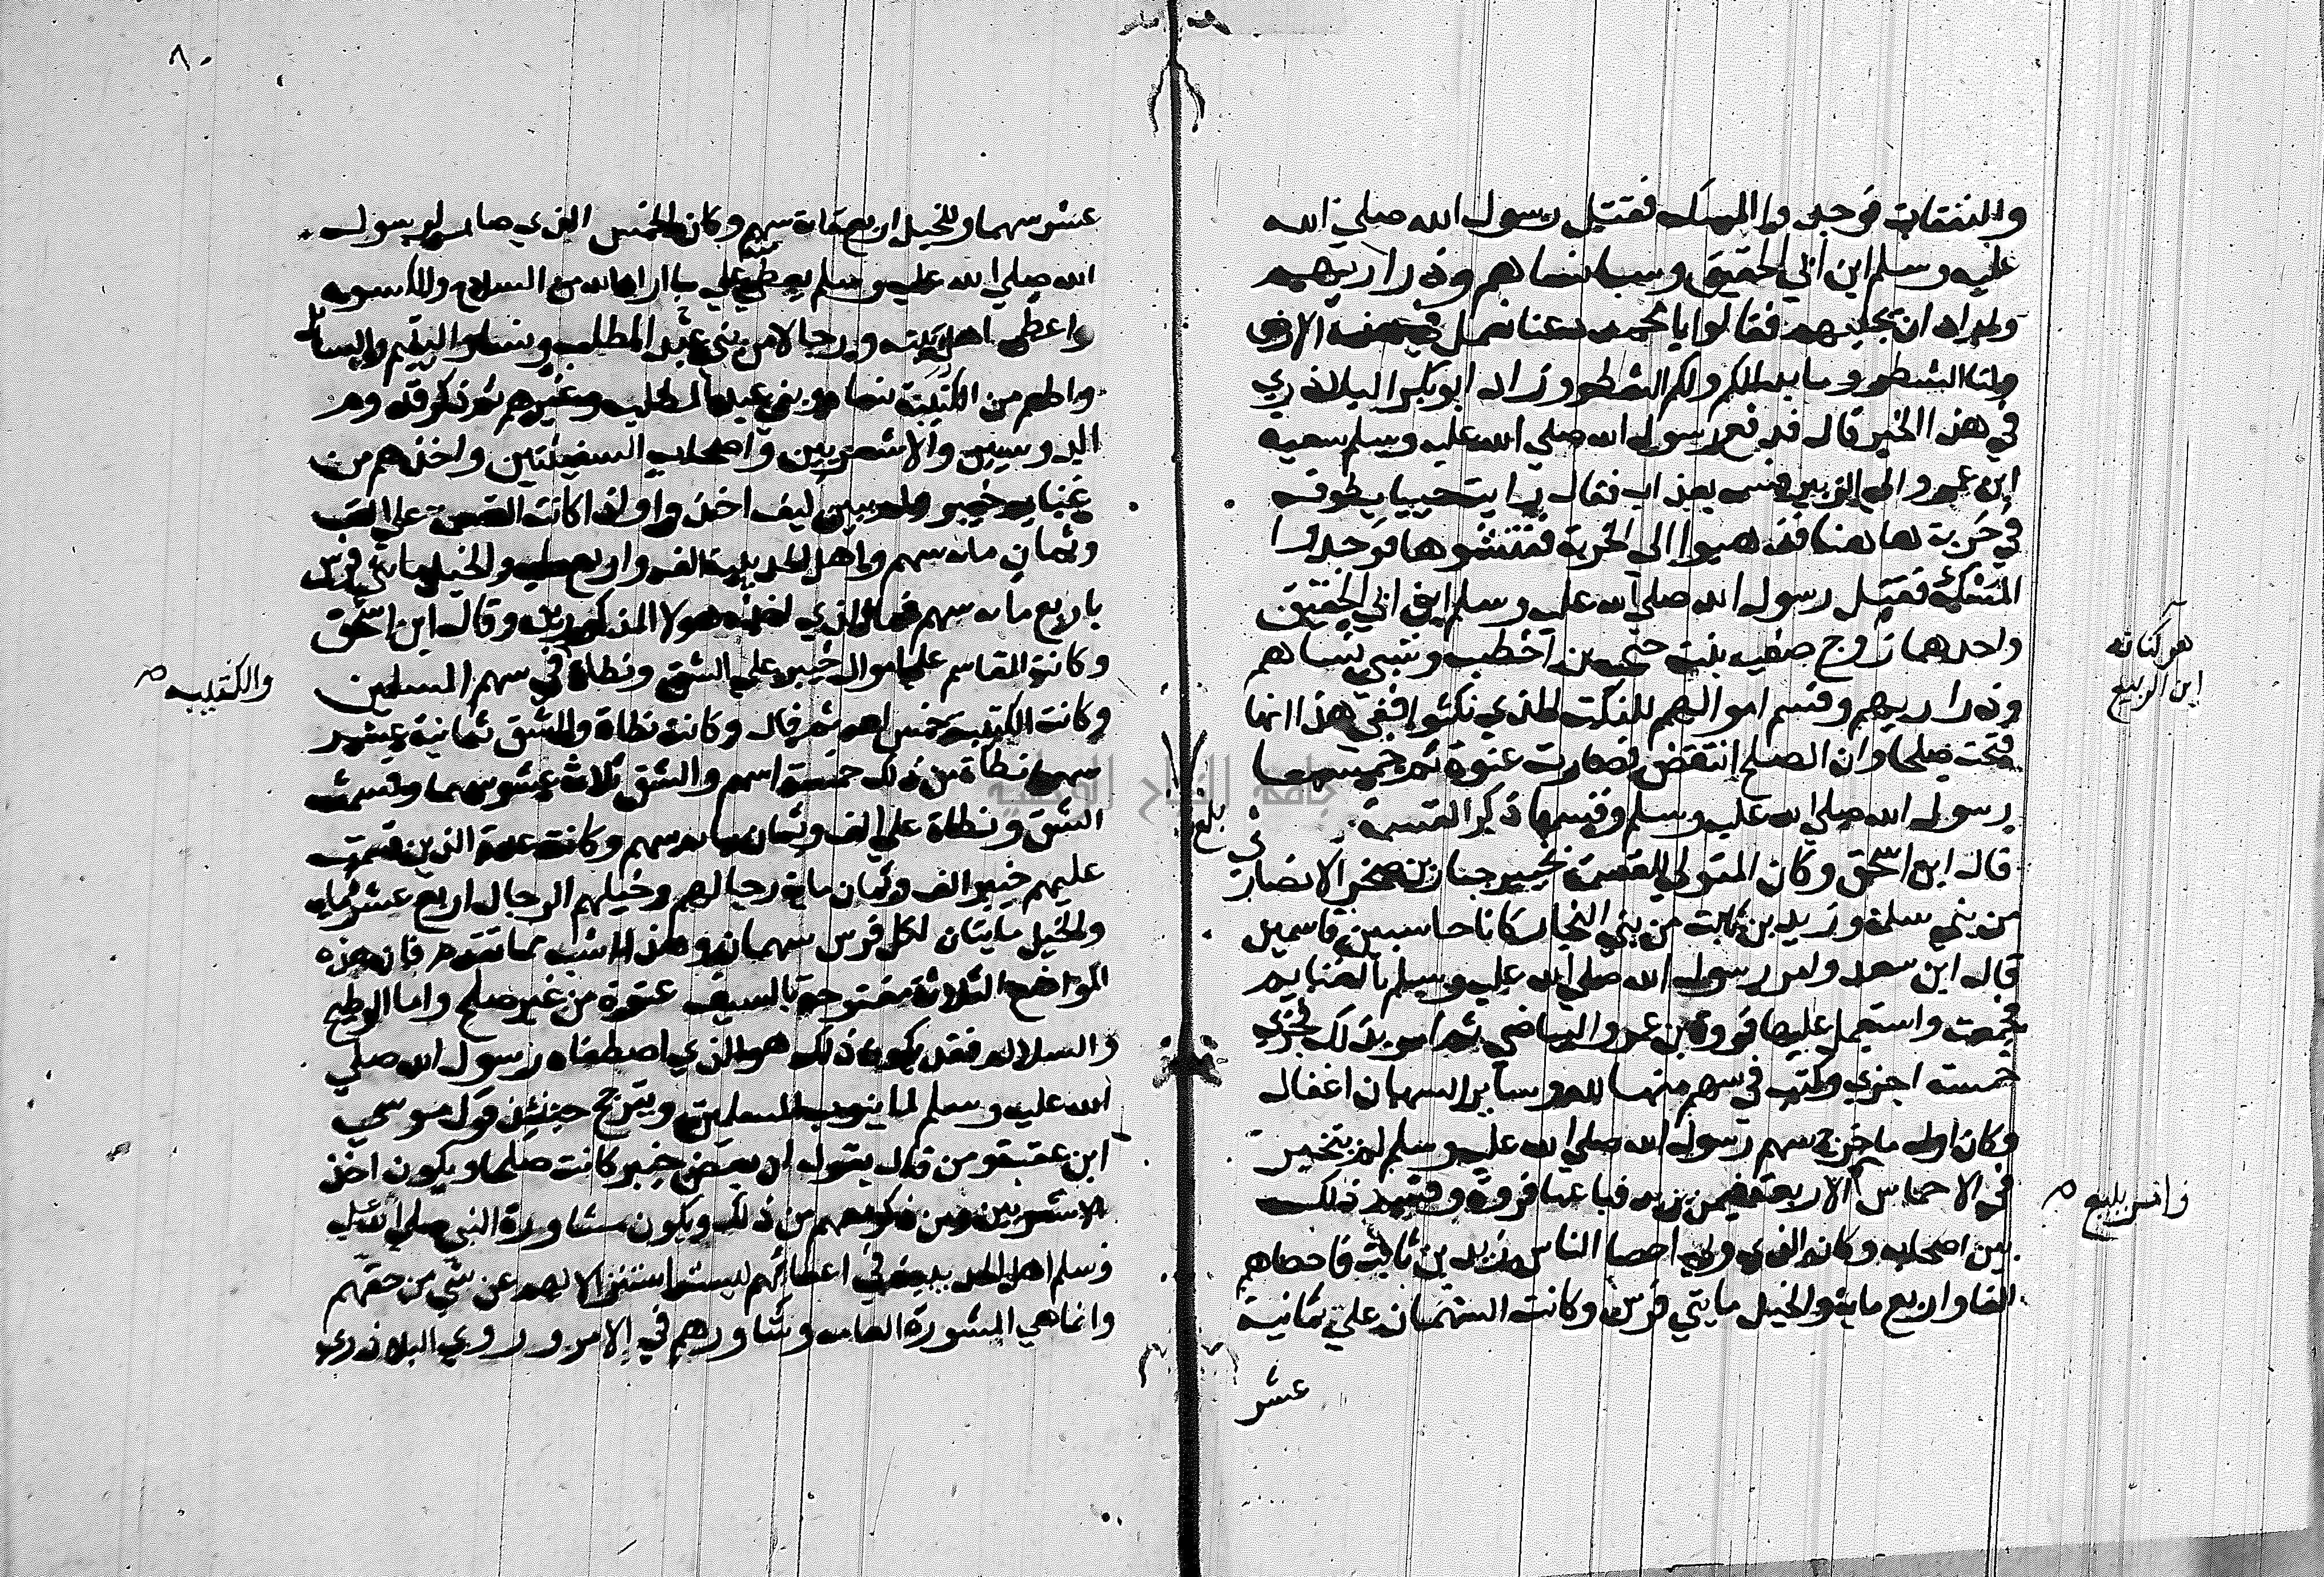 والنفقات فوجدوا المسك فقتل رسول الله صلي الله
عليه وسلم ابن ابي الحقيق وسبا نساهم وذراريهم
واراد ان يجليهم فقالوا يا محمد دعنا نعمل في هذه الارض
ولنا الشطر وما بدا لكم ولكم الشطر وزاد ابو بكر البلاذري
في هذا الخبر قال فدفع رسول الله صلي الله عليه وسلم سعية
ابن عمرو الي الزبير فمسه بعذاب فقال رايت حييا يطوف
في خربة هاهنا فذهبوا الي الخربة ففتشوها فوجدوا
المسك فقتل رسول الله صلي الله عليه وسلم ابن ابي الحقيق
واحدهما زوج صفيه بنت حيي بن اخطب وسبي نساهم
وذراريهم وقسم اموالهم للنكث الذي نكثوا ففي هذا انها
فتحت صلحا وان الصلح انتقض فصارت عنوة ثم خمسها
رسول الله صلي الله عليه وسلم وقسمها ذكر القسمة
قال ابن اسحق وكان المتولي للقسمة بخيبر جبار بن صخر الانصاري
من بني سلمة وزيد بن ثابت من بني النجار كانا حاسبين قاسمين
قال ابن سعد وامر رسول الله صلي الله عليه وسلم بالغنايم
فجمعت واستعمل عليها فروة بن عمرو البياضي ثم امر بذلك فجزي
خمسة اجزي وكتب في سهم منها لله وساير السهمان اغفال
وكان اول ما خرج سهم رسول الله صلي الله عليه وسلم لم يتخير
في الاخماس الاربعة فيمن يزيد فباعها فروة وقسم ذلك
بين اصحابه وكان الذي ولي احصا الناس زيد بن ثابت فاحصاهم
الفا واربع ماية والخيل مايتي فرس وكانت السهمان علي ثمانية
عشر
هو كنانه
ابن الربيع
بلغ
٨٠
عشر سهما وللخيل اربع ماية سهم وكان الخمس الذي صار لرسول
الله صلي الله عليه وسلم يعطي منه علي ما اراه الله من السلاح والكسوه
واعطي اهل بيته ورجالا من بني عبد المطلب ونساو اليتيم والسايل
واطعم من الكتيبة نساه وبني عبد المطلب وغيرهم ثم ذكر قدوم
الدوسيين والاشعريين واصحاب السفينتين واخذهم من
غنايم خيبر ولم يبين كيف اخذوا واذا كانت القسمة علي الف
وثمان مايه سهم واهل الحديبية الف واربع مايه والخيل مايتي فرس
باربع مايه سهم فما الذي اخذه هولا المذكورين وقال ابن اسحق
وكانت المقاسم علي اموال خيبر علي الشق ونطاة في سهم المسلمين
والكتيبه
وكانت الكتيبة خمس الله ثم قال وكانت نطاة والشق ثمانية عشر
سهما نطاة من ذلك خمسة اسهم والشق ثلاث عشر سهما وقسمت
الشق ونطاة علي الف وثمان مايه سهم وكانت عدة الذين قسمت
عليهم خيبر الف وثمان ماية رجالهم وخيلهم الرجال اربع عشر مايه
والخيل مايتان لكل فرس سهمان وهذا اشبه مما تقدم فان هذه
المواضع الثلاثة مفتوحة بالسيف عنوة من غير صلح واما الوطيح
والسلالم فقد يكون ذلك هو الذي اصطفاه رسول الله صلي
الله عليه وسلم لما ينوب المسلمين ويترجح حينئذ قول موسي
ابن عقبة ومن قال يقول ان بعض خيبر كانت صلحا ويكون اخذ
الاشعريين ومن ذكر معهم من ذلك ويكون مشاورة النبي صلي الله عليه
وسلم اهل الحديبية في اعطائهم ليست استنزالا لهم عن شي من حقهم
وانما هي المشورة العامه وشاورهم في الامر وروي البلاذري